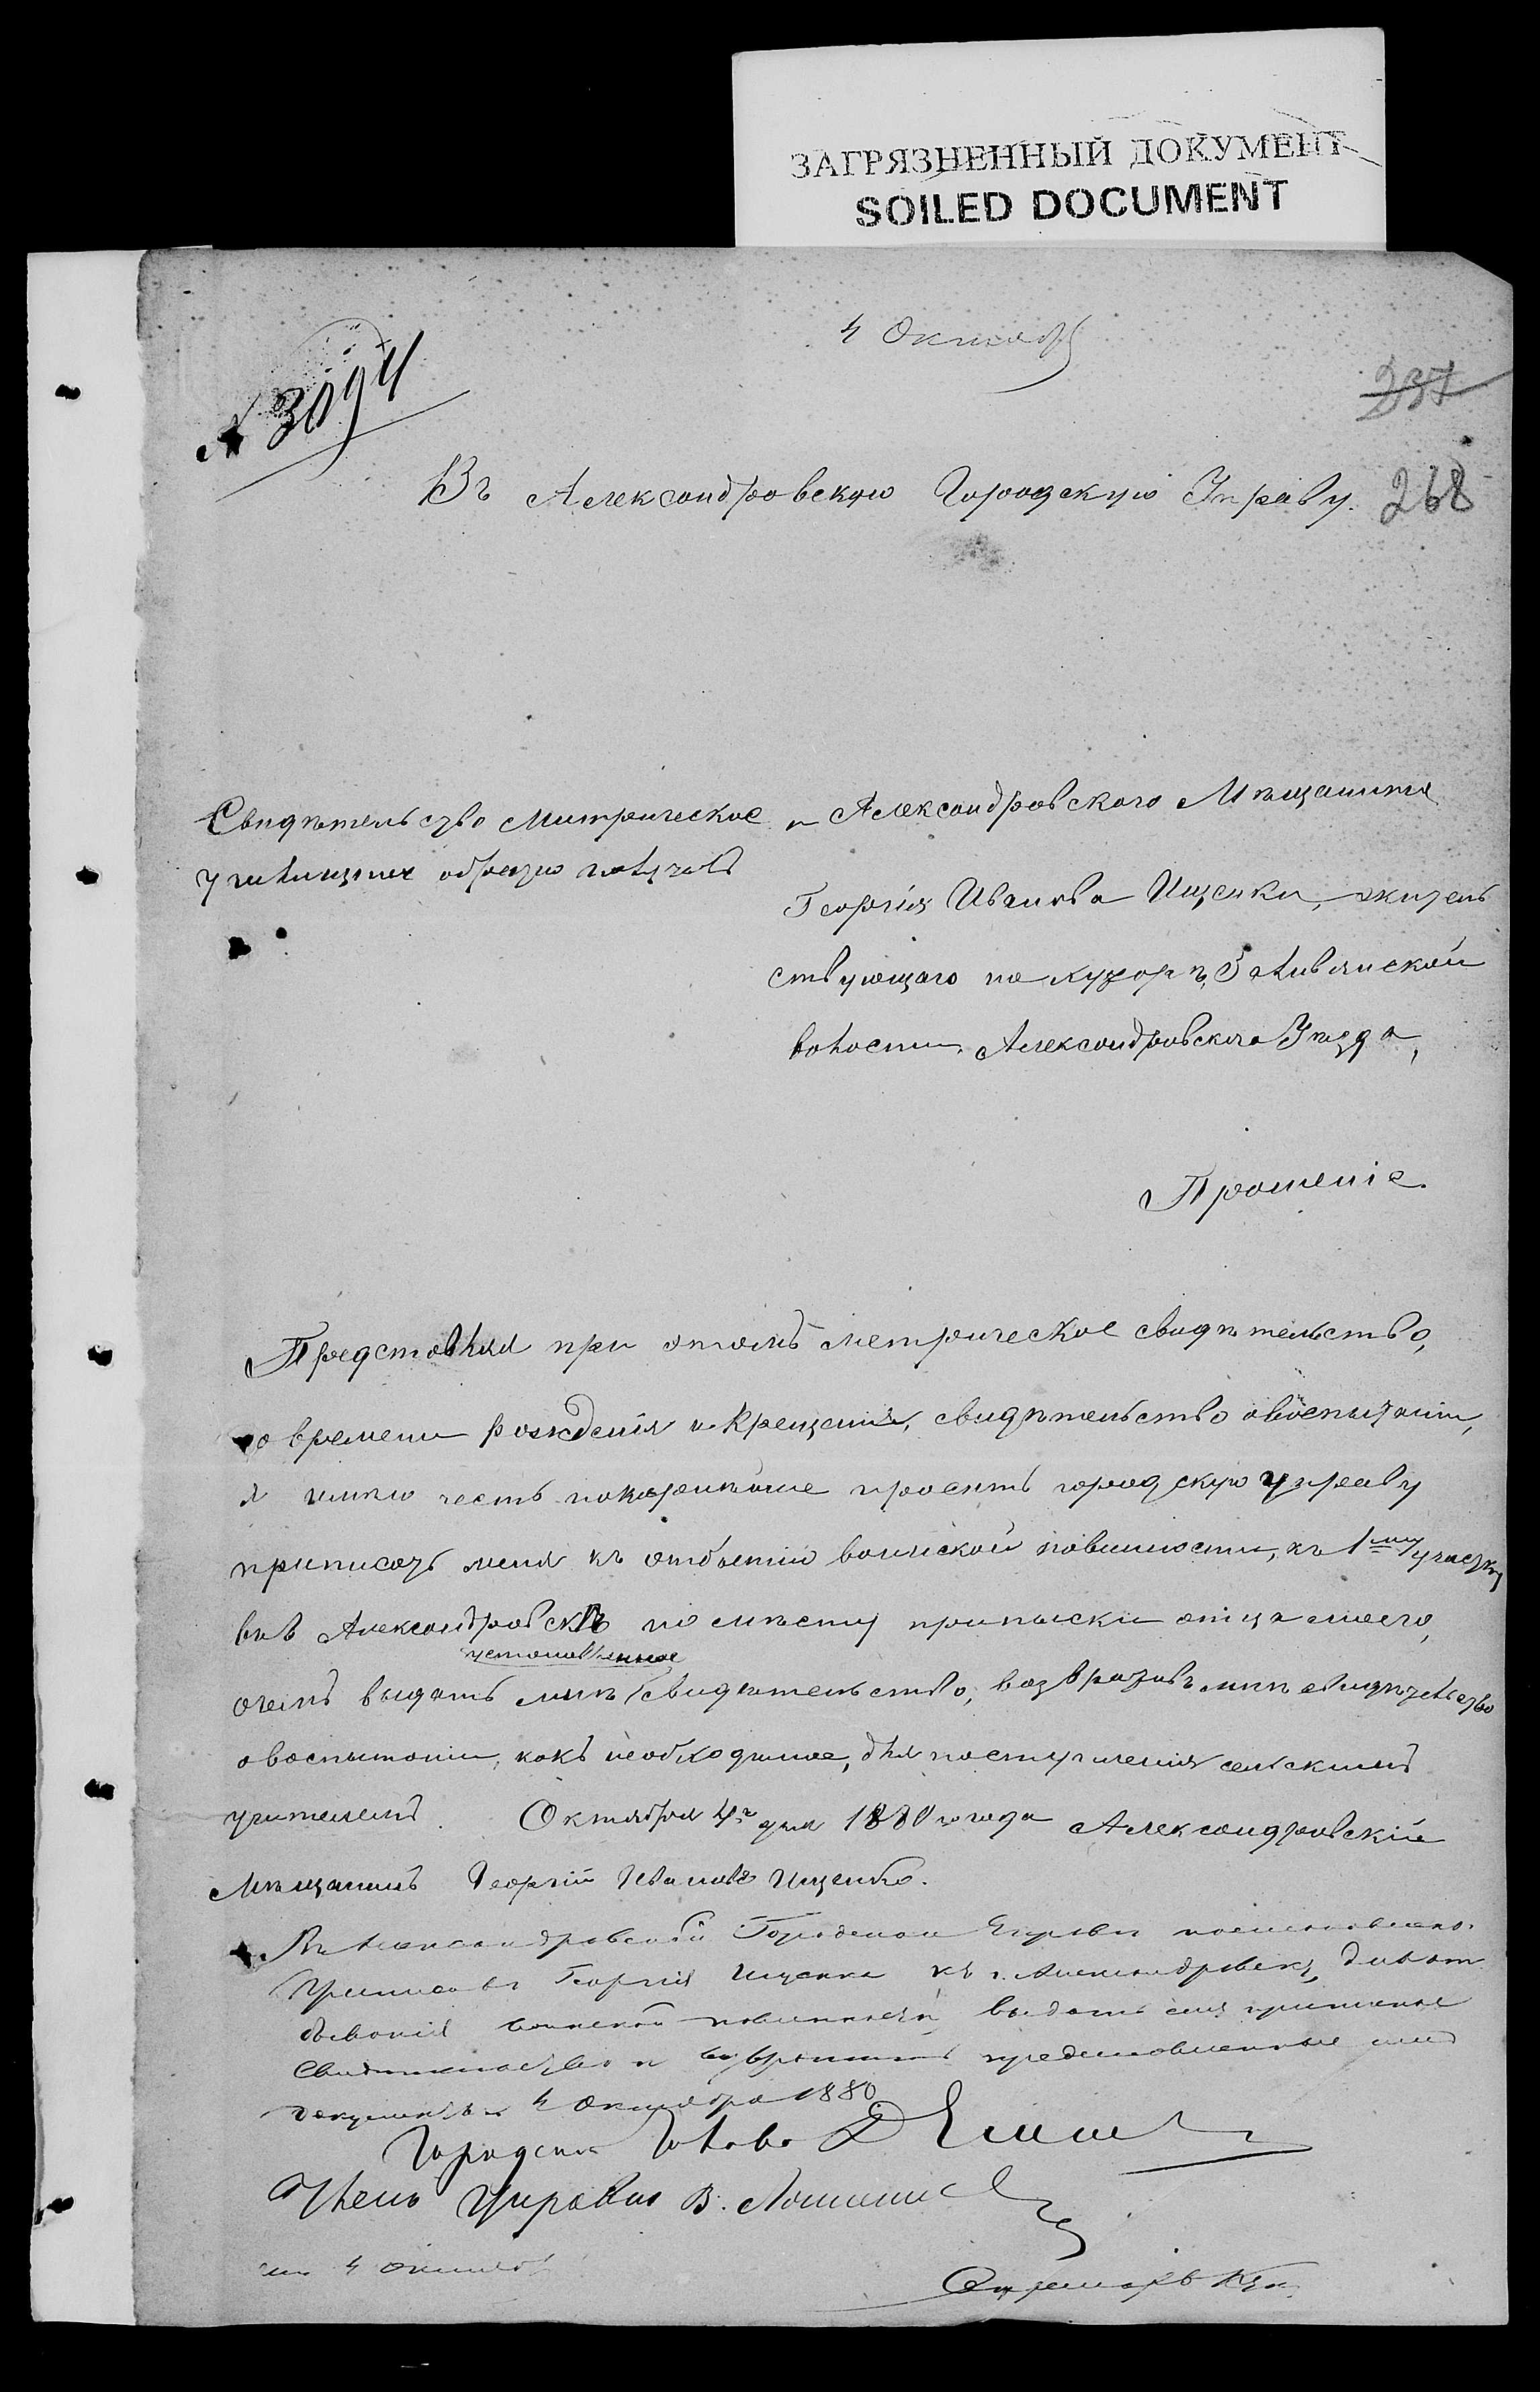 ЗАГРЯЗНЕННЫЙ ДОКУМЕНТ
SOILED DOCUMENT
4 Октябр
№ 3094
237
268
Въ Александровскую Городскую Управу.
Свидѣтельство Митрическое и
училищное обратно получилъ
Александровского Мѣщанина
Георгія Иванова Ищенки, житель
ствующаго на хуторѣ,
волости Александровскаго Уѣзда,
Прошеніе.
Представляя при этомъ метрическое свидѣтельство,
о времени рожденія и крещенія, свидѣтельство о воспытаніи,
я имѣю честь покорнѣйше просить городскую управу
приписать меня къ отбытію воинской повинности, къ 1му участку
въ Александровскѣ по мѣсту приписки отца моего,
установленное
о чемъ выдать мнѣ свидѣтельство, возвративъ мнѣ свидѣтельство
о воспытаніи, какъ необходимое, для поступленія сельскимъ
учителемъ. Октября 4го дня 1880 года Александровскій
Мѣщанинъ Георгій Ивановъ Ищенко.
Въ Александровской Городской Управѣ постановлено.
Приписавъ Георгія Ищенка къ г. Александровску, для от
быванія воинской повинности, выдать ему приписное
свидѣтельство и возвратить представленные имъ
документы 4 Октября 1880
Городской Голова
Членъ Управы В.
4 Октября
Секретарь